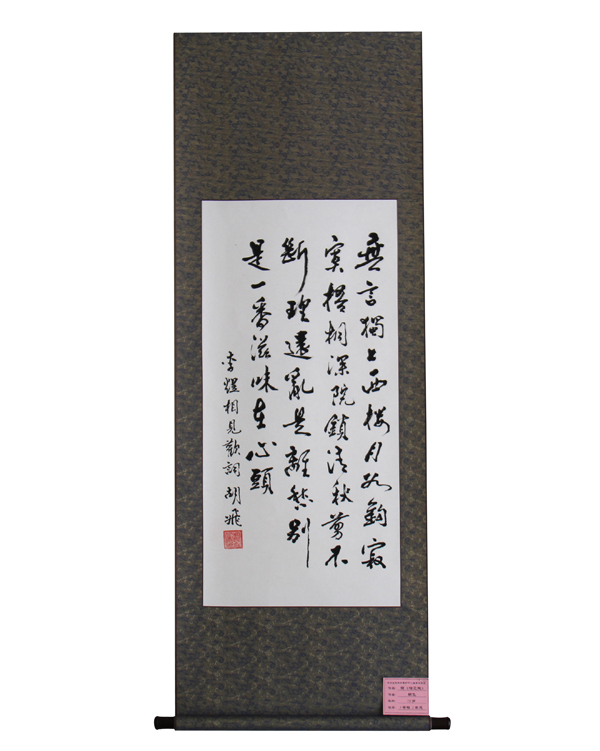 無言獨上西楼月如鉤寂
寞梧桐深院鎖清秋剪不
斷理還亂是離愁別
是一番滋味在心頭
李煜相見歡詞 胡飛